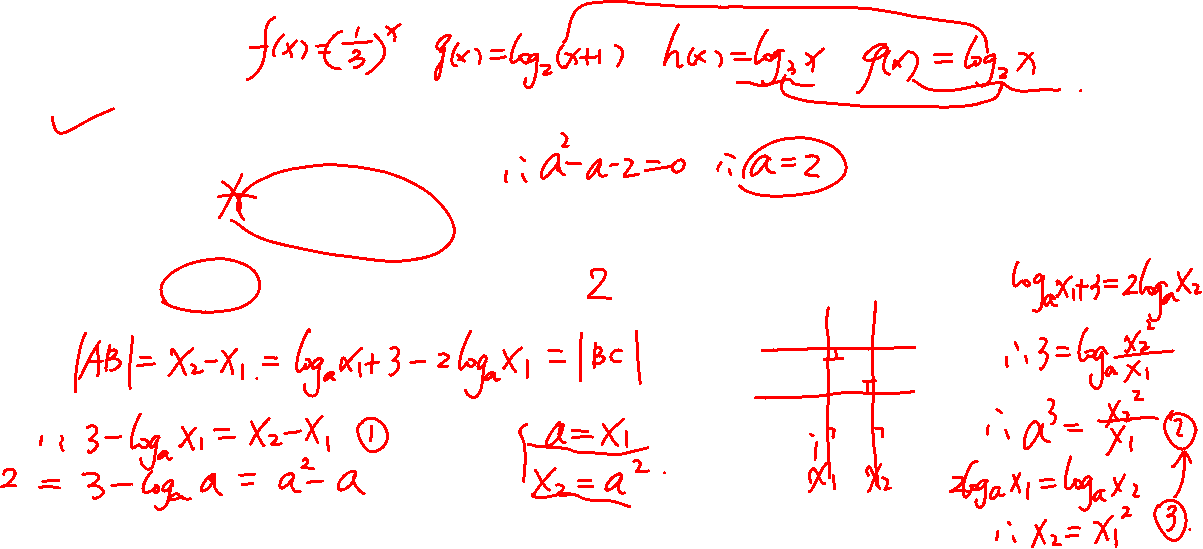 f(x)=(1/3)^x g(x)=log₂(x+1) h(x)=log₃x φ(x)=log₂x
∴a²-a-2=0 ∴a=2
2
|AB|=x₂-x₁=logₐx₁+3-2logₐx₁=|BC|
∴3-logₐx₁=x₂-x₁ ①
2=3-logₐa=a²-a
a=x₁
x₂=a²
x₁ x₂
logₐx₁+3=2logₐx₂
∴3=logₐx₂²/x₁
∴a³=x₂²/x₁ ②
2logₐx₁=logₐx₂
∴x₂=x₁² ③